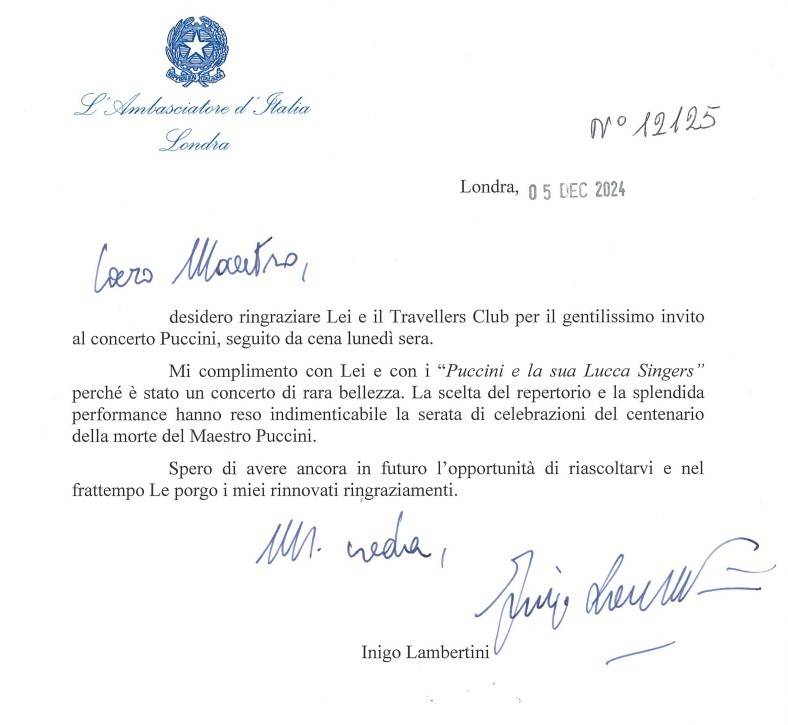 L'Ambasciatore d'Italia
Londra
N° 12125
Londra, 05 DEC 2024
Caro Maestro,
desidero ringraziare Lei e il Travellers Club per il gentilissimo invito
al concerto Puccini, seguito da cena lunedì sera.
Mi complimento con Lei e con i “Puccini e la sua Lucca Singers”
perché è stato un concerto di rara bellezza. La scelta del repertorio e la splendida
performance hanno reso indimenticabile la serata di celebrazioni del centenario
della morte del Maestro Puccini.
Spero di avere ancora in futuro l’opportunità di riascoltarvi e nel
frattempo Le porgo i miei rinnovati ringraziamenti.
Mi creda,
Inigo Lambertini